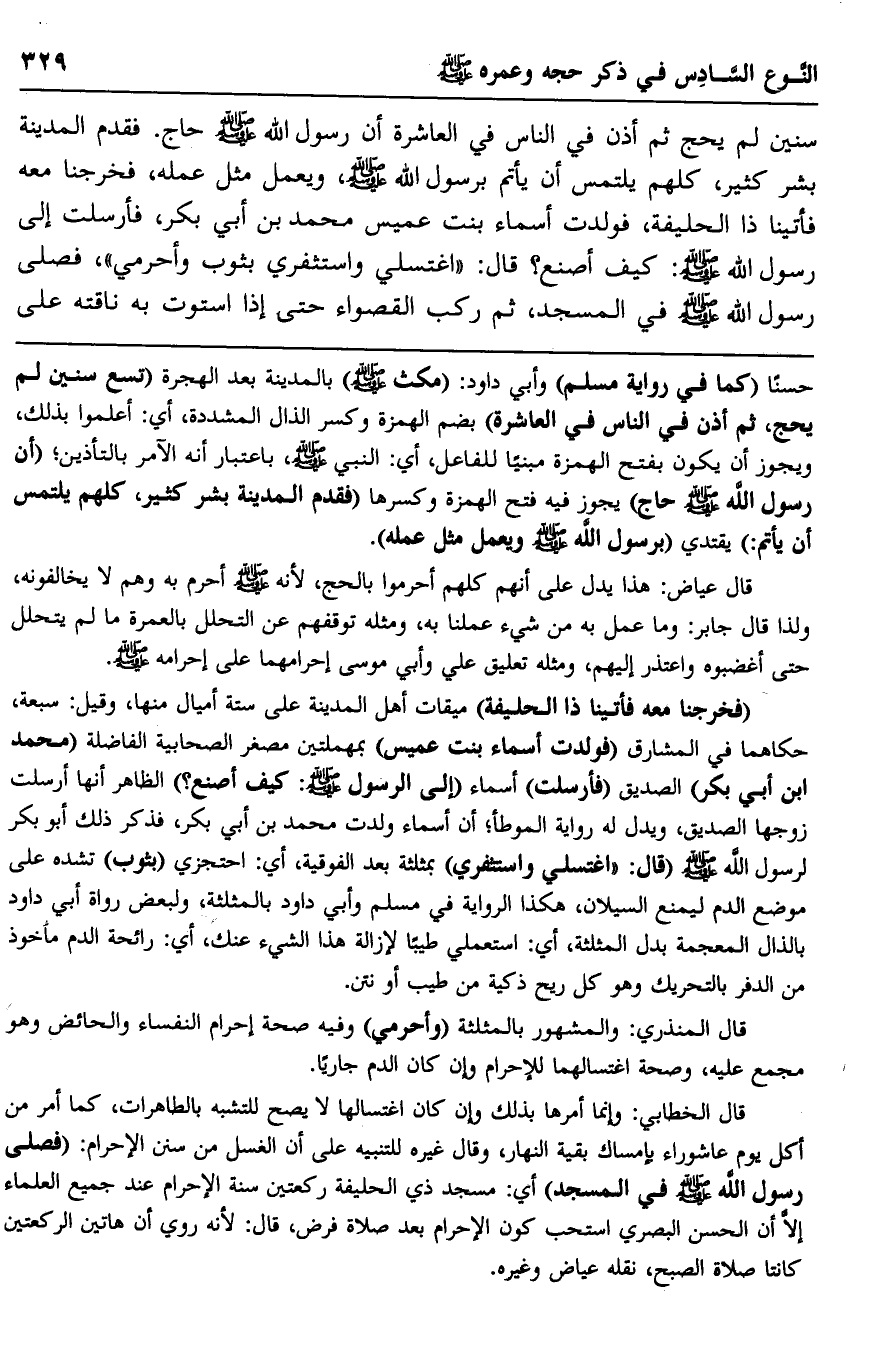 النَّوع السَّادِس في ذكر حجه وعمره ﷺ ٣٢٩
سنين لم يحج ثم أذن في الناس في العاشرة أن رسول الله ﷺ حاج. فقدم المدينة
بشر كثير، كلهم يلتمس أن يأتم برسول الله ﷺ، ويعمل مثل عمله، فخرجنا معه
فأتينا ذا الحليفة، فولدت أسماء بنت عميس محمد بن أبي بكر، فأرسلت إلى
رسول الله ﷺ: كيف أصنع؟ قال: «اغتسلي واستثفري بثوب وأحرمي»، فصلى
رسول الله ﷺ في المسجد، ثم ركب القصواء حتى إذا استوت به ناقته على
حسنًا (كما في رواية مسلم) وأبي داود: (مكث ﷺ) بالمدينة بعد الهجرة (تسع سنين لم
يحج، ثم أذن في الناس في العاشرة) بضم الهمزة وكسر الذال المشددة، أي: أعلموا بذلك،
ويجوز أن يكون بفتح الهمزة مبنيًا للفاعل، أي: النبي ﷺ، باعتبار أنه الآمر بالتأذين؛ (أن
رسول اللَّه ﷺ حاج) يجوز فيه فتح الهمزة وكسرها (فقدم المدينة بشر كثير، كلهم يلتمس
أن يأتم:) يقتدي (برسول اللَّه ﷺ ويعمل مثل عمله).
قال عياض: هذا يدل على أنهم كلهم أحرموا بالحج، لأنه ﷺ أحرم به وهم لا يخالفونه،
ولذا قال جابر: وما عمل به من شيء عملنا به، ومثله توقفهم عن التحلل بالعمرة ما لم يتحلل
حتى أغضبوه واعتذر إليهم، ومثله تعليق علي وأبي موسى إحرامهما على إحرامه ﷺ.
(فخرجنا معه فأتينا ذا الحليفة) ميقات أهل المدينة على ستة أميال منها، وقيل: سبعة،
حكاهما في المشارق (فولدت أسماء بنت عميس) بمهملتين مصغر الصحابية الفاضلة (محمد
ابن أبي بكر) الصديق (فأرسلت) أسماء (إلى الرسول ﷺ: كيف أصنع؟) الظاهر أنها أرسلت
زوجها الصديق، ويدل له رواية الموطأ؛ أن أسماء ولدت محمد بن أبي بكر، فذكر ذلك أبو بكر
لرسول اللَّه ﷺ (قال: «اغتسلي واستثفري) بمثلثة بعد الفوقية، أي: احتجزي (بثوب) تشده على
موضع الدم ليمنع السيلان، هكذا الرواية في مسلم وأبي داود بالمثلثة، ولبعض رواة أبي داود
بالذال المعجمة بدل المثلثة، أي: استعملي طيبًا لإزالة هذا الشيء عنك، أي: رائحة الدم مأخوذ
من الدفر بالتحريك وهو كل ريح ذكية من طيب أو نتن.
قال المنذري: والمشهور بالمثلثة (وأحرمي) وفيه صحة إحرام النفساء والحائض وهو
مجمع عليه، وصحة اغتسالهما للإحرام وإن كان الدم جاريًا.
قال الخطابي: وإنما أمرها بذلك وإن كان اغتسالها لا يصح للتشبه بالطاهرات، كما أمر من
أكل يوم عاشوراء بإمساك بقية النهار، وقال غيره للتنبيه على أن الغسل من سنن الإحرام: (فصلى
رسول اللَّه ﷺ في المسجد) أي: مسجد ذي الحليفة ركعتين سنة الإحرام عند جميع العلماء
إلاَّ أن الحسن البصري استحب كون الإحرام بعد صلاة فرض، قال: لأنه روي أن هاتين الركعتين
كانتا صلاة الصبح، نقله عياض وغيره.